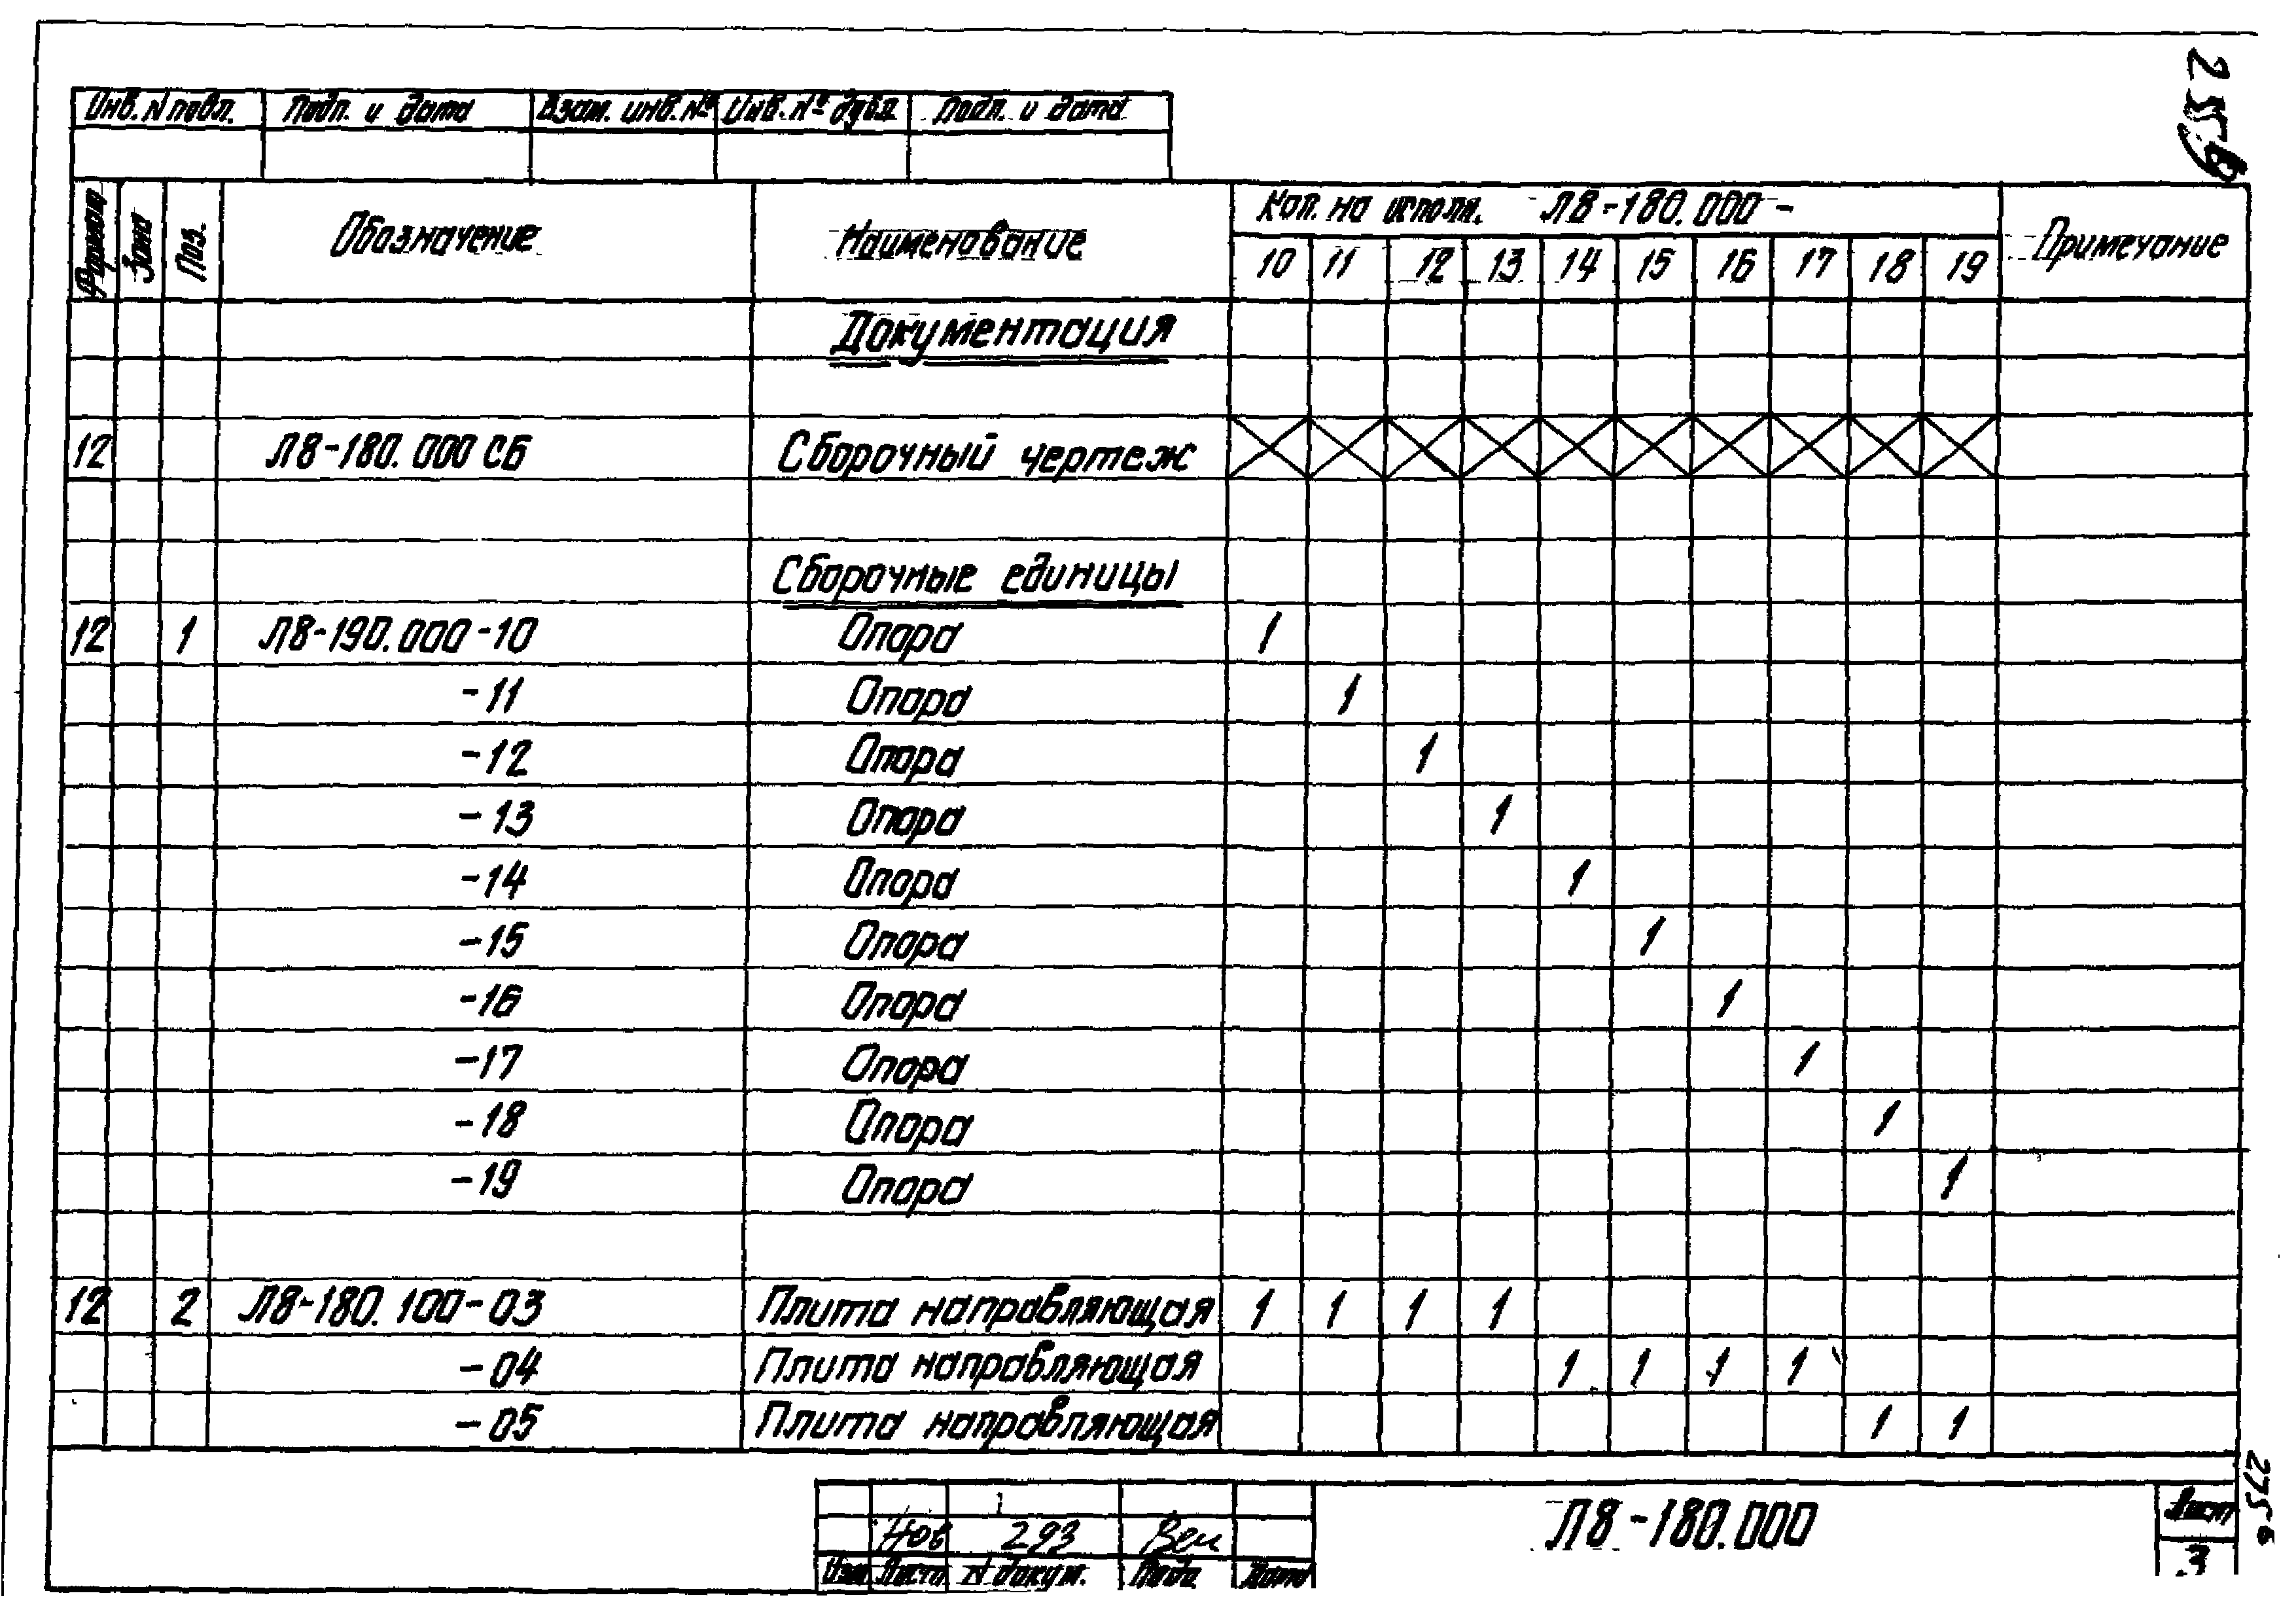 Инв. N подл. Подп. и дата Взам. инв. № Инв. № дубл. Подп. и дата
Формат Зона Поз. Обозначение Наименование Кол. на исполн. Л8-180.000 - Примечание
10 11 12 13 14 15 16 17 18 19
Документация
12 Л8-180.000 СБ Сборочный чертеж
Сборочные единицы
12 1 Л8-190.000-10 Опора 1
-11 Опора 1
-12 Опора 1
-13 Опора 1
-14 Опора 1
-15 Опора 1
-16 Опора 1
-17 Опора 1
-18 Опора 1
-19 Опора 1
12 2 Л8-180.100-03 Плита направляющая 1 1 1 1
-04 Плита направляющая 1 1 1 1
-05 Плита направляющая 1 1
Нов 293
Изм Листо N докум. Подп. Дата
Л8-180.000
Лист
3